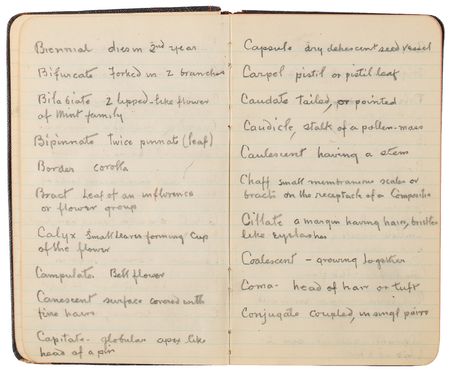 Biennial dies in 2nd year
Bifurcate Forked in 2 branches
Bilabiate 2 lipped-like flower
of Mint family
Bipinnate twice pinnate (leaf)
Border corolla
Bract Leaf of an
or flower group
Calyx Small leaves forming cup
of the flower
Campulate. Bell flower
Canescent surface covered with
fine hairs
Capitate- globular apex like
head of a pin
Capsule dry dehescent seed vessel
Carpel pistil or pistil leaf
Caudate Tailed, or pointed
Caudicle, stalk of a pollen-mass
Caulescent having a stem
Chaff small membranous scales or
bracts on the receptacle of a Composite
Cillate a margin having hairs, bristles
like eyelashes
Coalescent - growing together
Coma- head of hair or tuft
Conjugate coupled, in singl pairs